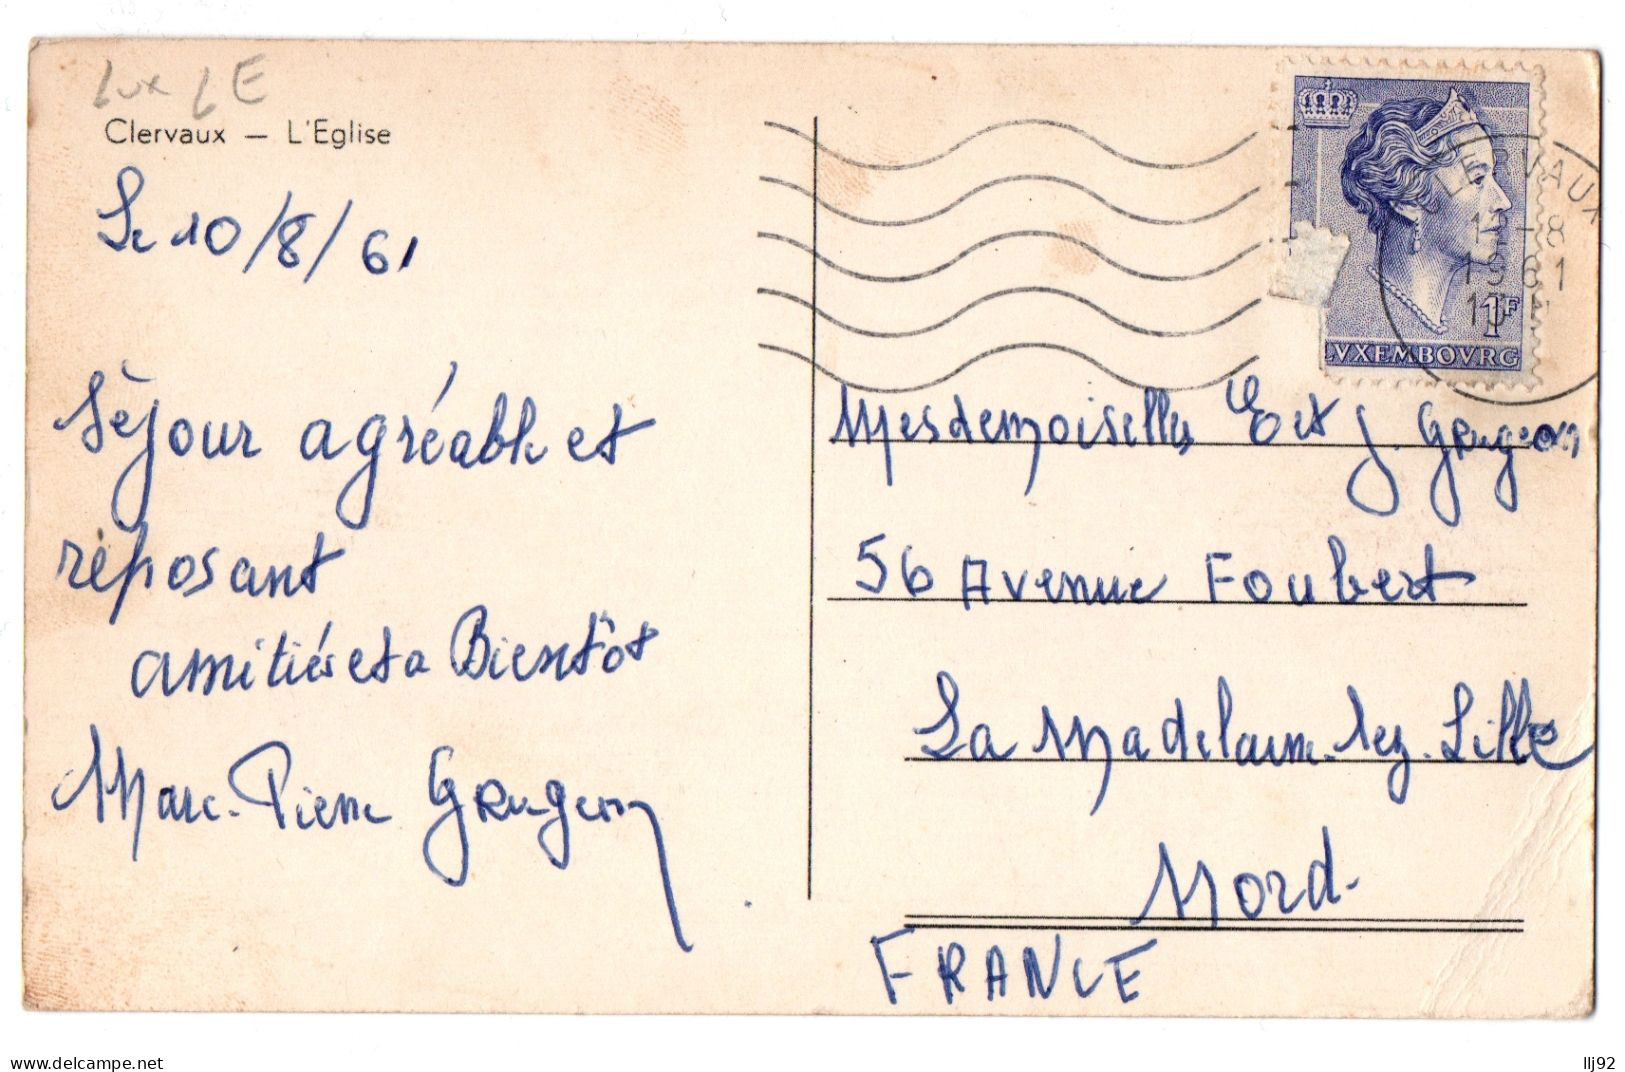 Lux L E
Clervaux — L'Eglise
Le 10/8/61
Séjour agréable et
réposant
amitiés et a Bientôt
Marc-Pierre Grugeon
LERVAUX
12-8
1961
1F
LVXEMBOVRG
Mesdemoiselles E et J. Grugeon
56 Avenue Foubert
La Madelaine-lez-Lille
Nord-
FRANCE
www.delcampe.net
llj92